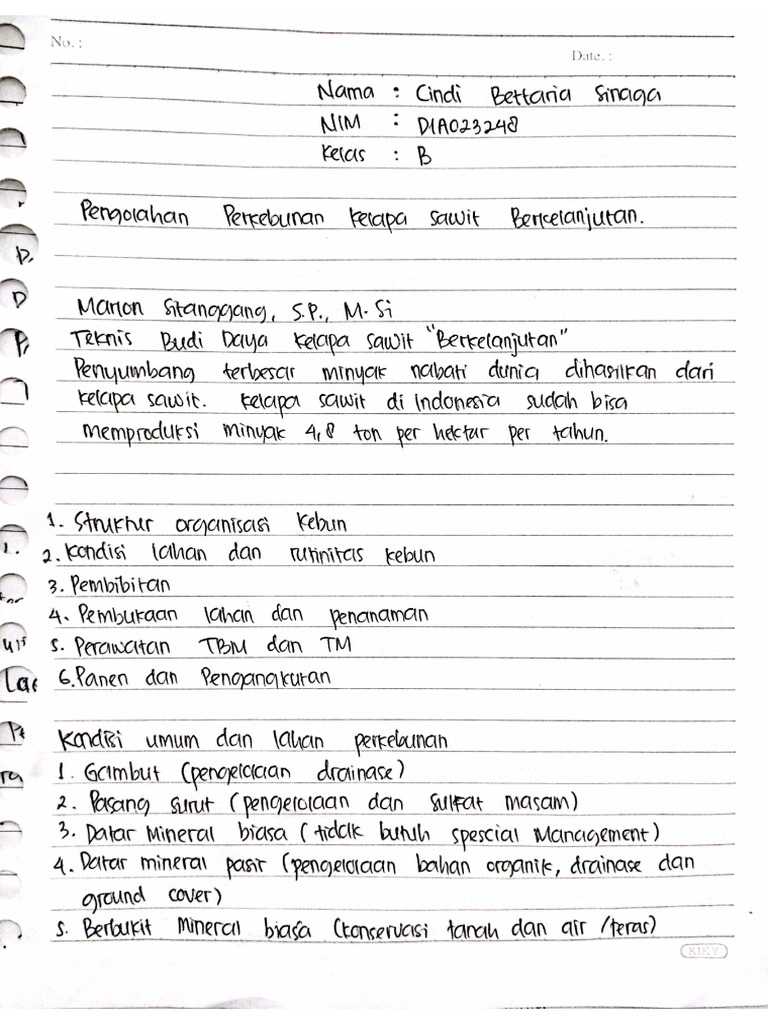 No. :
Date. :
Nama : Cindi Bettaria Sinaga
NIM : D1A023248
Kelas : B
Pengolahan Perkebunan Kelapa Sawit Berkelanjutan.
Marlon Sitanggang, S.P., M.Si
Teknis Budi Daya Kelapa Sawit "Berkelanjutan"
Penyumbang terbesar minyak nabati dunia dihasilkan dari
Kelapa sawit. Kelapa sawit di Indonesia sudah bisa
memproduksi minyak 4,8 ton per hektar per tahun.
1. Struktur organisasi Kebun
2. Kondisi lahan dan rutinitas kebun
3. Pembibitan
4. Pembukaan lahan dan penanaman
5. Perawatan TBM dan TM
6. Panen dan Pengangkutan
Kondisi umum dan lahan perkebunan
1. Gambut (pengelolaan drainase)
2. Pasang surut (pengelolaan dan sulfat masam)
3. Datar Mineral biasa (tidak butuh spescial Management)
4. Datar mineral pasir (pengelolaan bahan organik, drainase dan
ground cover)
5. Berbukit Mineral biasa (konservasi tanah dan air /teras)
KIKY